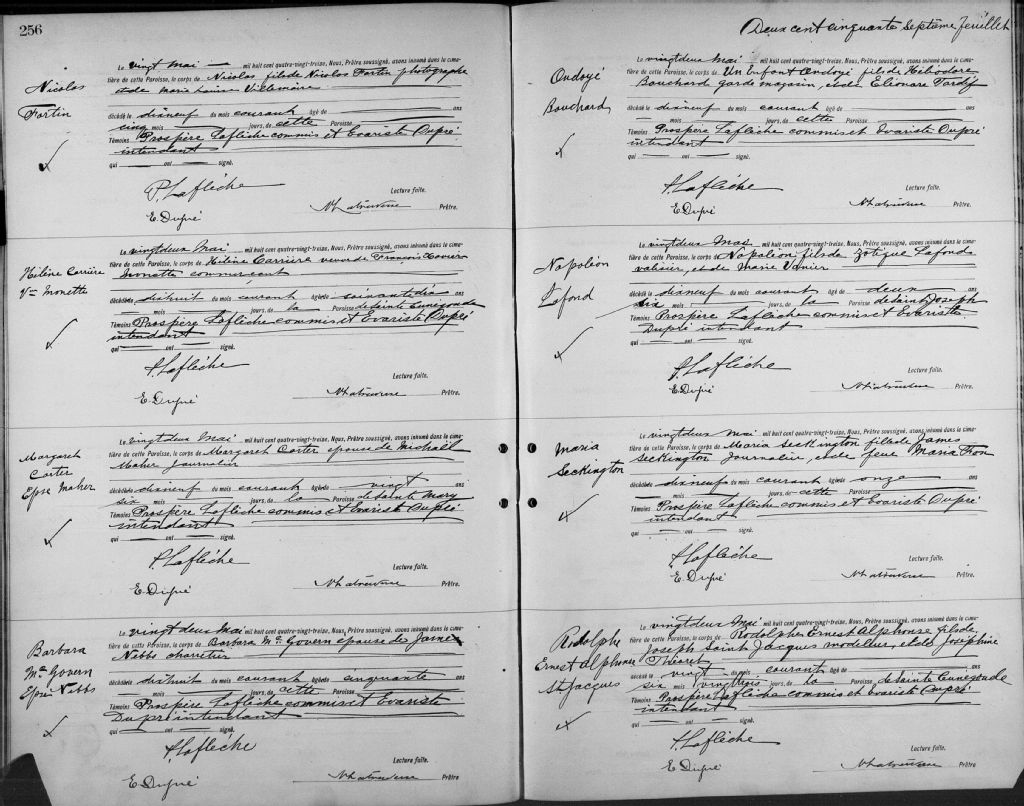 256
Nicolas
Fortin
Le vingt Mai — mil huit cent quatre-vingt-treize, Nous, Prêtre soussigné, avons inhumé dans le cime-
tière de cette Paroisse, le corps de Nicolas fils de Nicolas Fortin photographe
et de Marie Louise Villemaire
décédé le dixneuf du mois courant âgé de — ans
cinq mois — jours, de cette Paroisse
Témoins Prospère Laflèche commis et Evariste Dupré
intendant
qui — ont — signé.
P. Laflèche
Lecture faite.
E. Dupré
Prêtre.
Hélène Carrière
Vve Monette
Le vingtdeux Mai mil huit cent quatre-vingt-treize, Nous, Prêtre soussigné, avons inhumé dans le cime-
tière de cette Paroisse, le corps de Hélène Carrière veuve de François Xavier
Monette commercent
décédée le dixhuit du mois courant âgée de soixante dix ans
— mois — jours, de la Paroisse de Sainte Cunégonde
Témoins Prospère Laflèche commis et Evariste Dupré
intendant
qui — ont — signé.
P. Laflèche
Lecture faite.
E. Dupré
Prêtre.
Margaret
Carter
Epse Maher
Le vingtdeux Mai mil huit cent quatre-vingt-treize, Nous, Prêtre soussigné, avons inhumé dans le cime-
tière de cette Paroisse, le corps de Margaret Carter epouse de Michaël
Maher journalier
décédée le dixneuf du mois courant âgée de vingt ans
six mois — jours, de la Paroisse de Sainte Mary
Témoins Prospère Laflèche commis et Evariste Dupré
intendant
qui — ont — signé.
P. Laflèche
Lecture faite.
E. Dupré
Prêtre.
Barbara
Mc Govern
Epse Nebbs
Le vingtdeux Mai mil huit cent quatre-vingt-treize, Nous, Prêtre soussigné, avons inhumé dans le cime-
tière de cette Paroisse, le corps de Barbara Mc Govern epouse de James
Nebbs charetier
décédée le dixhuit du mois courant âgée de cinquante ans
— mois — jours, de cette Paroisse
Témoins Prospère Laflèche commis et Evariste
Dupré intendant
qui — ont — signé.
P. Laflèche
Lecture faite.
E. Dupré
Prêtre.
Deux cent cinquante Septième feuillet
Ondoyé
Bouchard
Le vingtdeux Mai mil huit cent quatre-vingt-treize, Nous, Prêtre soussigné, avons inhumé dans le cime-
tière de cette Paroisse, le corps de Un Enfant Ondoyé fils de Héliodore
Bouchard garde magasin, et de Eléonare Tardif
décédé le dixneuf du mois courant âgé de — ans
— mois — jours, de cette Paroisse
Témoins Prospère Laflèche commis et Evariste Dupré
intendant
qui — ont — signé.
P. Laflèche
Lecture faite.
E. Dupré
Prêtre.
Napoléon
Lafond
Le vingtdeux Mai mil huit cent quatre-vingt-treize, Nous, Prêtre soussigné, avons inhumé dans le cime-
tière de cette Paroisse, le corps de Napoléon fils de Zotique Lafond
voiturier, et de Marie Vanier
décédé le dixneuf du mois courant âgé de deux ans
six mois — jours, de la Paroisse de Saint Joseph
Témoins Prospère Laflèche commis et Evariste
Dupré intendant
qui — ont — signé.
P. Laflèche
Lecture faite.
E. Dupré
Prêtre.
Maria
Seckington
Le vingtdeux Mai mil huit cent quatre-vingt-treize, Nous, Prêtre soussigné, avons inhumé dans le cime-
tière de cette Paroisse, le corps de Maria Seckington fille de James
Seckington journalier, et de feue Maria
décédée le dixneuf du mois courant âgée de onze ans
— mois — jours, de cette Paroisse
Témoins Prospère Laflèche commis et Evariste Dupré
intendant
qui — ont — signé.
P. Laflèche
Lecture faite.
E. Dupré
Prêtre.
Rodolphe
Ernest Alphonse
St Jacques
Le vingtdeux Mai mil huit cent quatre-vingt-treize, Nous, Prêtre soussigné, avons inhumé dans le cime-
tière de cette Paroisse, le corps de Rodolphe Ernest Alphonse fils de
Joseph Saint Jacques modeleur, et de Joséphine
Théoret
décédé le vingt du mois courant âgé de — ans
six mois vingttrois jours, de la Paroisse de Sainte Cunégonde
Témoins Prospère Laflèche commis et Evariste Dupré
intendant
qui — ont — signé.
P. Laflèche
Lecture faite.
E. Dupré
Prêtre.